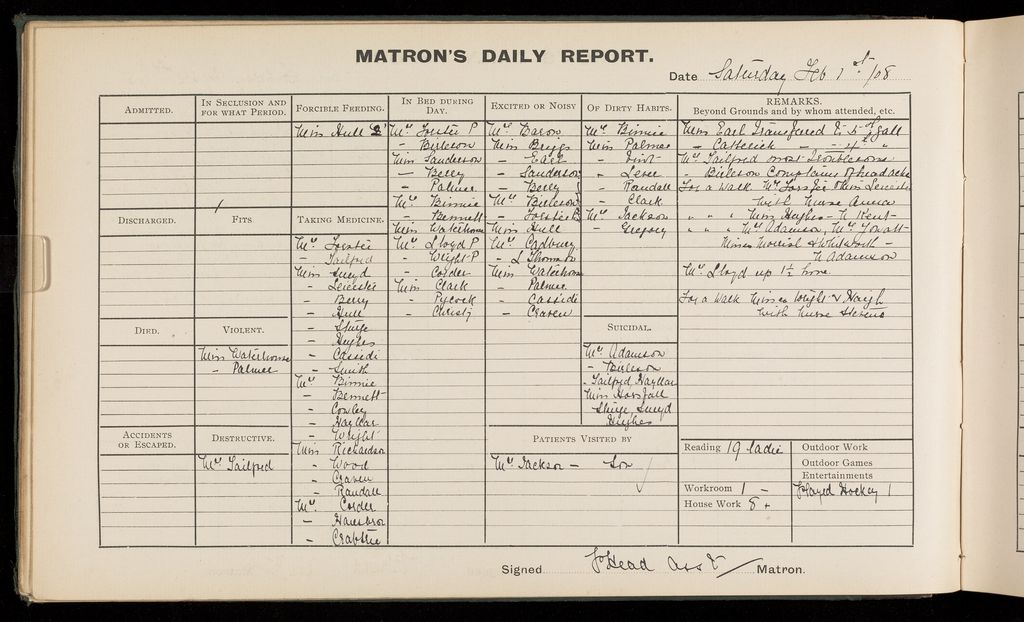 MATRON'S DAILY REPORT.
Date Saturday Feb 1st/08
ADMITTED.
IN SECLUSION AND FOR WHAT PERIOD.
FORCIBLE FEEDING.
Miss Hull 2
IN BED DURING DAY.
Mrs Forster P
- Birleson
Miss Sanderson
- Berry
- Palmer
Mrs Binnie
- Bennett
Miss Waterhouse
Mrs Lloyd P
- Wright P
- Corder
Miss Clark
- Pycock
- Christy
EXCITED OR NOISY
Mrs Baron
Miss Briggs
- Earl
- Sanderson
- Berry
Mrs Birleson
- Forster
Miss Hull
Mrs Cadbury
- L Thomson
Miss Waterhouse
- Palmer
- Cassidi
- Craven
OF DIRTY HABITS.
Mrs Binnie
Miss Palmer
-
- Leree
- Randall
- Clark
Mrs Jackson
- Gregory
REMARKS.
Beyond Grounds and by whom attended, etc.
Miss Earl Transfered to 5 of gall
- Catterick - - 4th "
Mrs Tailford most Troublesome
- Birleson Complains of headache
For a walk Mrs & Miss Leicester
with Nurse
" " " Miss Hughes - N Kent -
" " " Mrs Adamson, Mrs
Misses & Whitworth -
N Adamson
Mrs Lloyd up 1½ hours
For a walk Misses Wight & Haigh
with Nurse Stevens
DISCHARGED.
FITS
TAKING MEDICINE.
Mrs Forster
- Tailford
Miss
- Leicester
- Berry
- Hull
- Sturge
- Hughes
- Cassidi
- Smith
Mrs Binnie
- Bennett
- Cowley
- Hayllar
- Wright
Miss Richardson
- Wood
- Craven
- Randall
Mrs Corder
-
- Crabtree
DIED.
VIOLENT.
Miss Waterhouse
- Palmer
SUICIDAL.
Mrs Adamson
- Birleson
- Tailford, Hayllar
Miss Horsfall
Sturge,
Hughes
ACCIDENTS OR ESCAPED.
DESTRUCTIVE.
Mrs Tailford
PATIENTS VISITED BY
Mrs Jackson - Son
Reading 19 ladies
Outdoor Work
Outdoor Games
Entertainments
Workroom 1 -
Played Hockey 1
House Work 8 +
Signed Head Asst Matron.